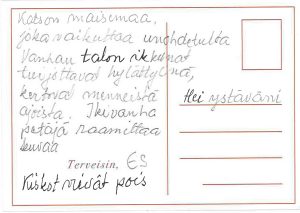 Katson maisemaa,
joka vaikuttaa unohdetulta
Vanhan talon ikkunat
turjottavat hylättyinä,
kertovat menneistä
ajoista. Ikivanha
petäjä raamittaa
kuvaa
Terveisin, ES
Kiskot vievät pois
Hei ystäväni